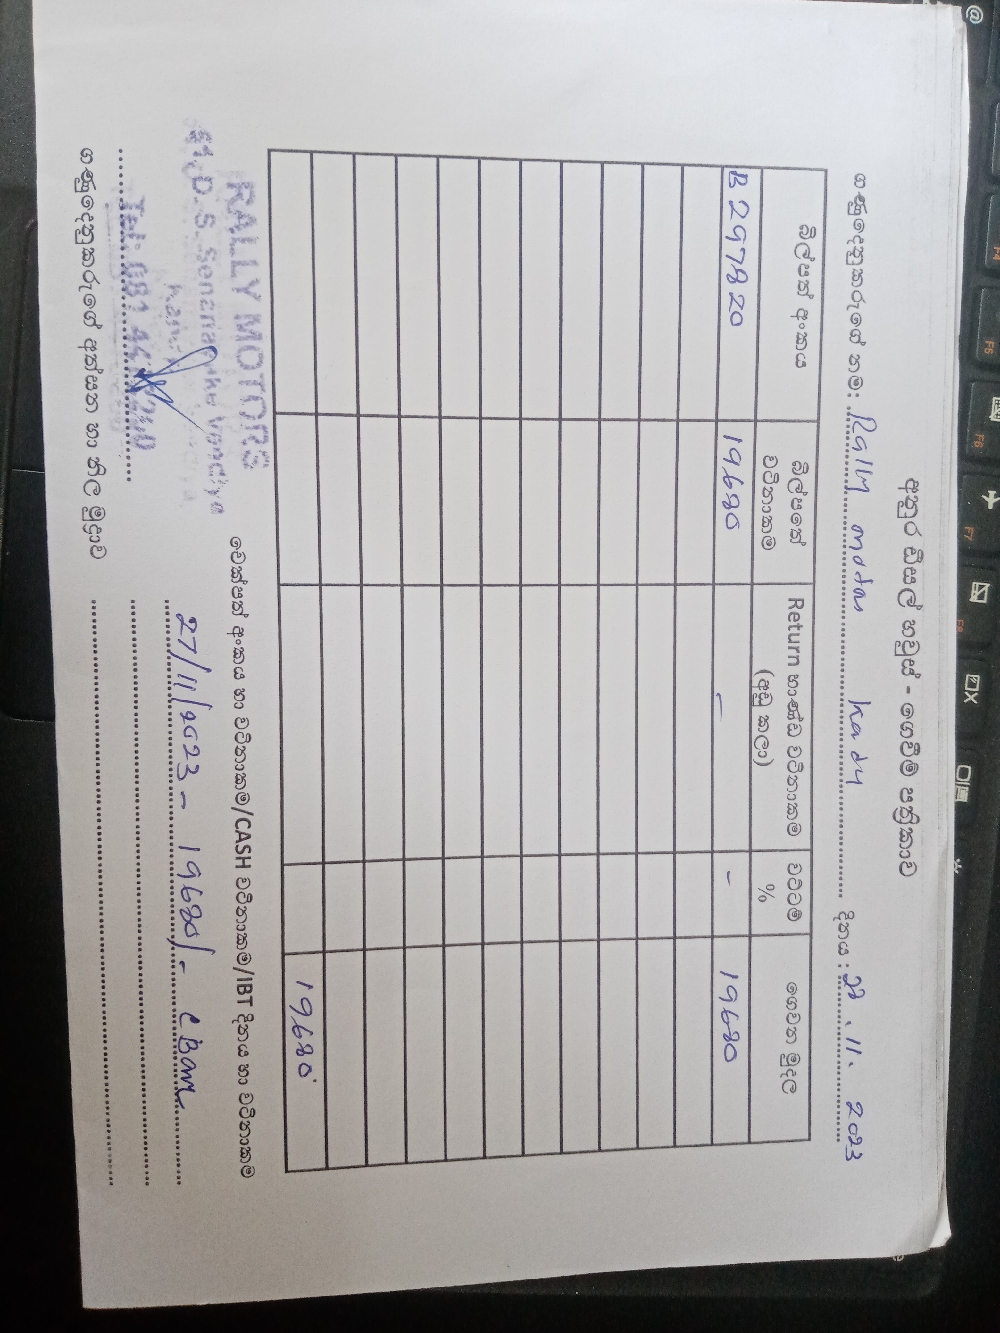 අනුර ඩීසල් හවුස් - ගෙවීම් පත්‍රිකාව
ගණුදෙනුකරුගේ නම: Rally motors kandy දිනය: 28.11.2023
බිල්පත් අංකය බිල්පතේ වටිනාකම Return භාණ්ඩ වටිනාකම (අඩු කලා) වට්ටම් % ගෙවන මුදල
B 297820 19680 - - 19680
19680
චෙක්පත් අංකය හා වටිනාකම/CASH වටිනාකම/IBT දිනය හා වටිනාකම
27/11/2023 - 19680/-
RALLY MOTORS
D. S. Senanayake
Tel: 081
ගණුදෙනුකරුගේ අත්සන හා නිල මුද්‍රාව